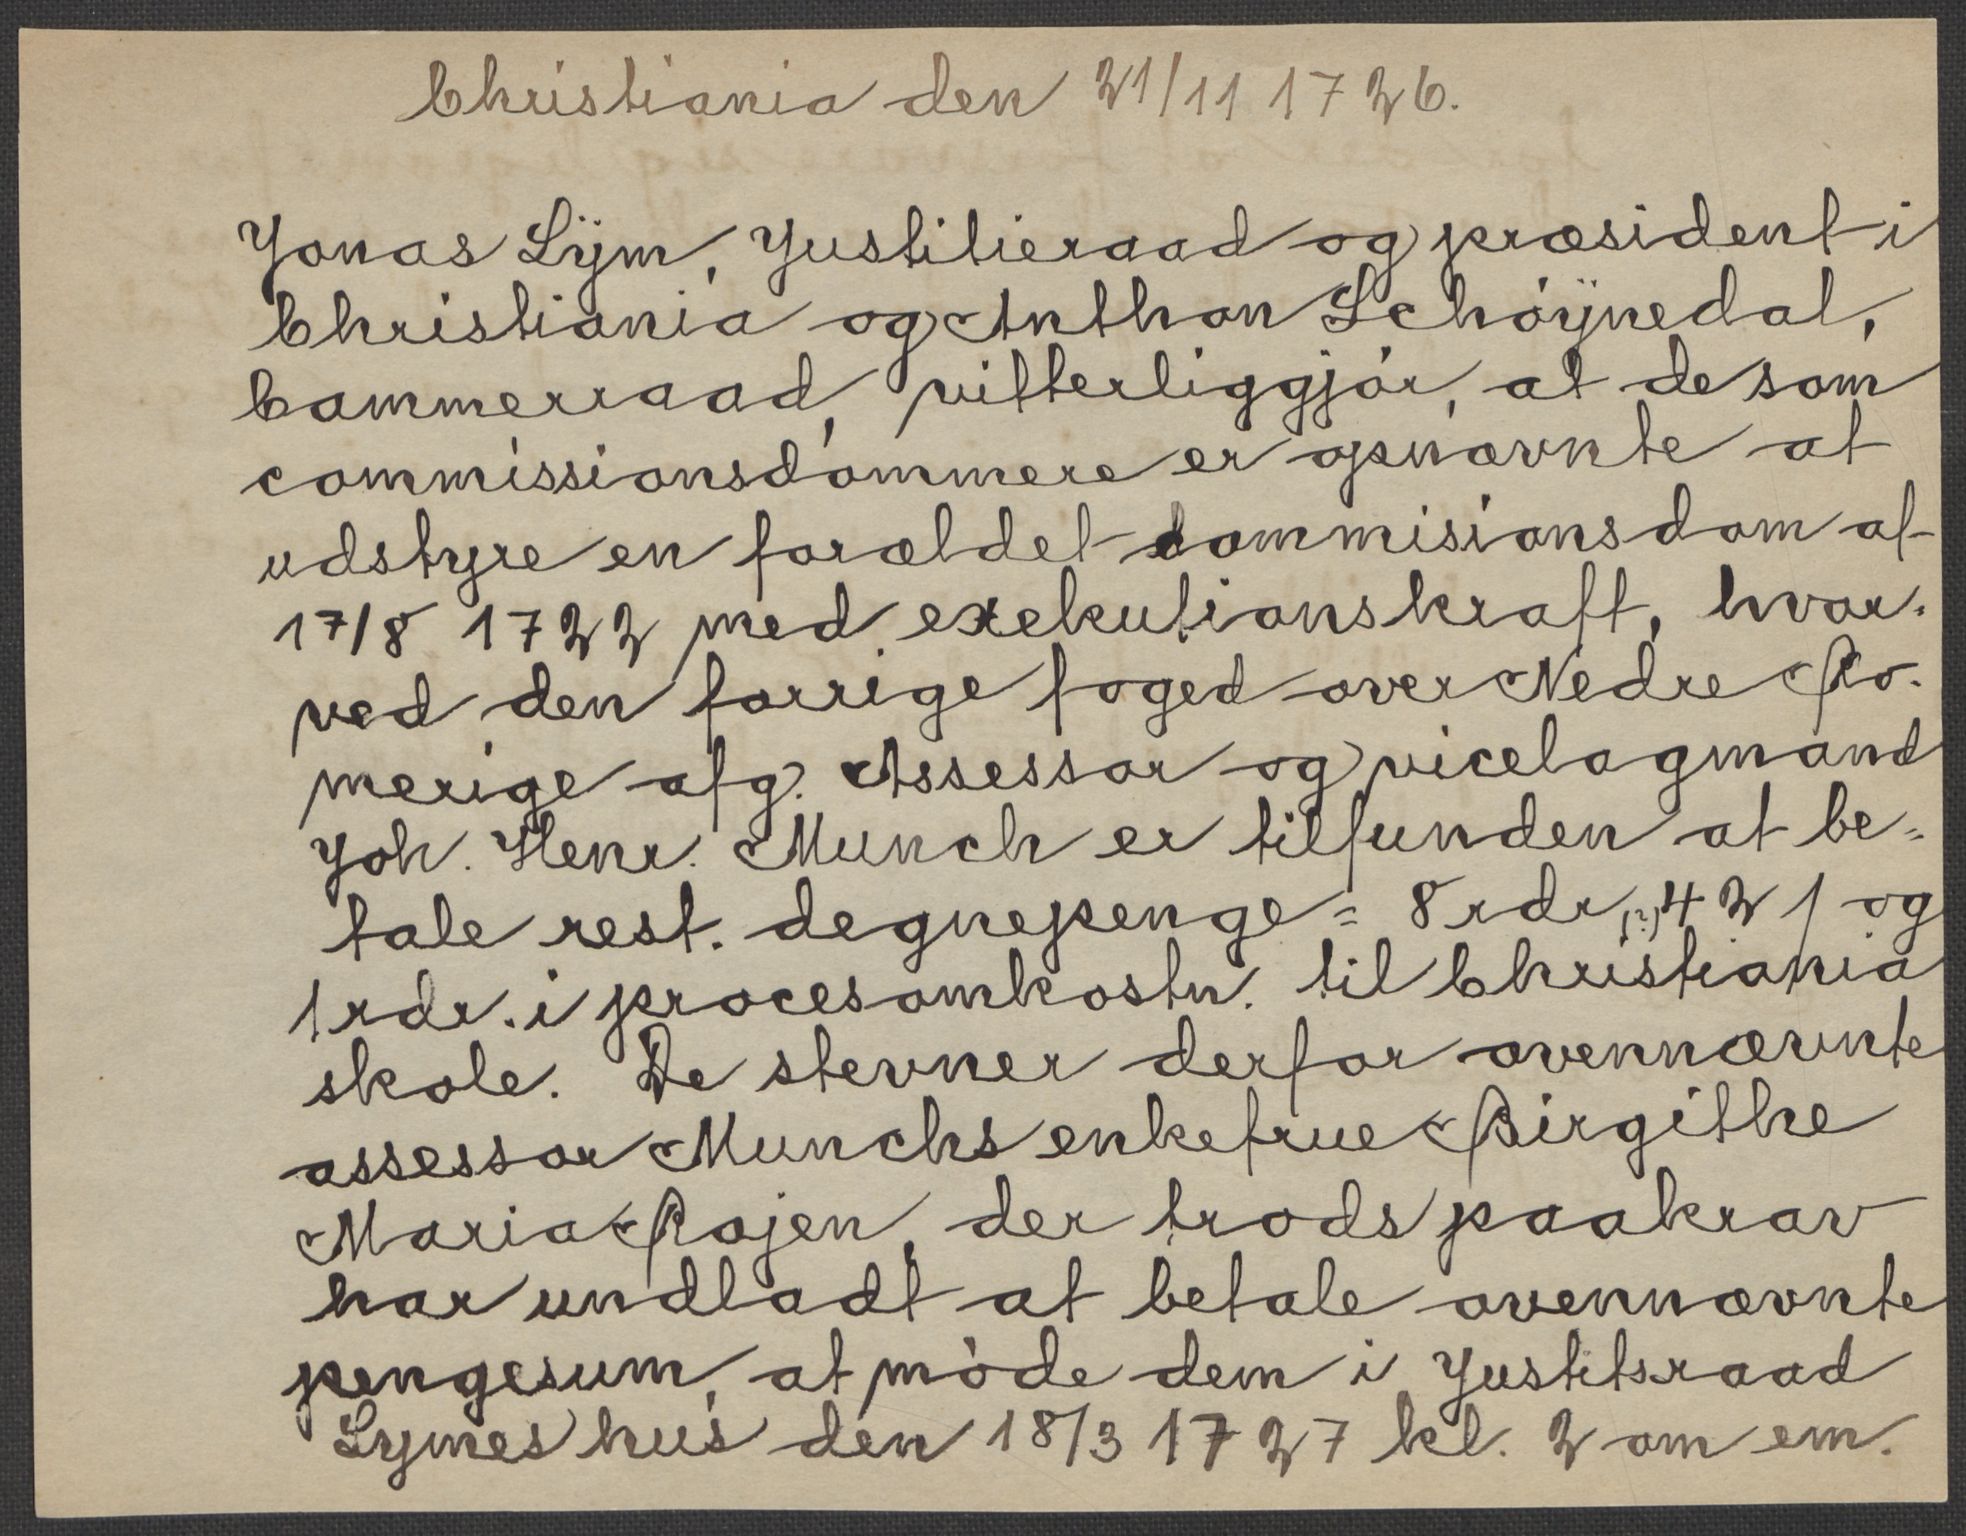 Christiania den 21/11 1726.
Jonas Lÿm, Justitieraad og præsident i
Christiania og Anthon Schöÿnedal,
Cammerraad, vitterliggjör, at de som
commissionsdommere er opnævnte at
udstyre en forældet commisionsdom af
17/8 1722 med exekutionskraft, hvor-
ved den forrige foged over Nedre Ro-
merige afg. Assessor og vicelagmand
Joh. Henr. Munch er tilfunden at be-
tale rest. degnepenge = 8 rdr, (?) 4 2 1 og
1 rdr. i procesomkostn. til Christiania
skole. De stevner derfor ovennævnte
assessor Munchs enkefrue Birgithe
Maria Rojen, der trods paakrav
har undladt at betale ovennævnte
pengesum, at möde dem i Justitsraad
Lymes hus den 18/3 1727 kl. 2 om em.